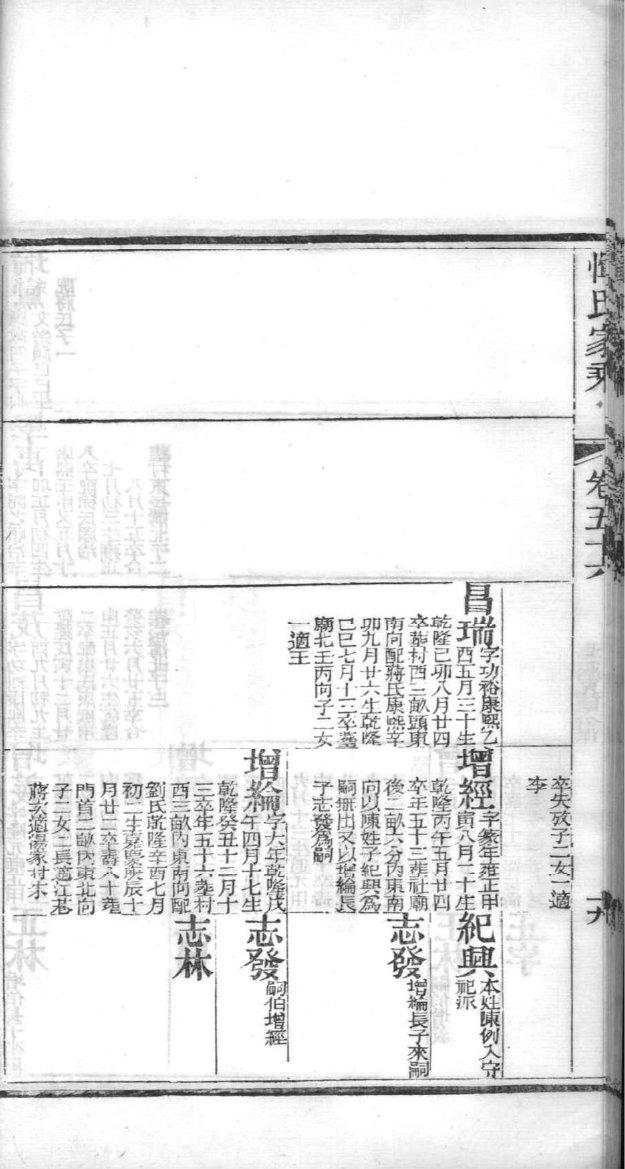 惲氏家乘
卷五十
卒失攷子二女一適
李
昌瑞
字功裕康熙乙
酉五月三十生
乾隆己卯八月廿四
卒葬村西三畝頭東
南向配蔣氏康熙辛
卯九月廿六生乾隆
己巳七月十三卒葬
廟北壬丙向子二女
一適王
增經
字年雍正甲
寅八月二十生
乾隆丙午五月廿四
卒年五十三葬社廟
後二畝六分內東南
向以陳姓子紀興爲
嗣撫出又以增綸長
子志發爲嗣
紀興
本姓陳例入守
祀派
志發
增綸長子來嗣
增綸
字六年乾隆戊
午四月十七生
乾隆癸丑十二月十
三卒年五十六葬村
西三畝內東南向配
劉氏乾隆辛酉七月
初二生嘉慶庚辰十
月廿二卒壽八十葬
門首二畝內東北向
子二女二長適江巷
蔣次適湯家村朱
志發
嗣伯增經
志林